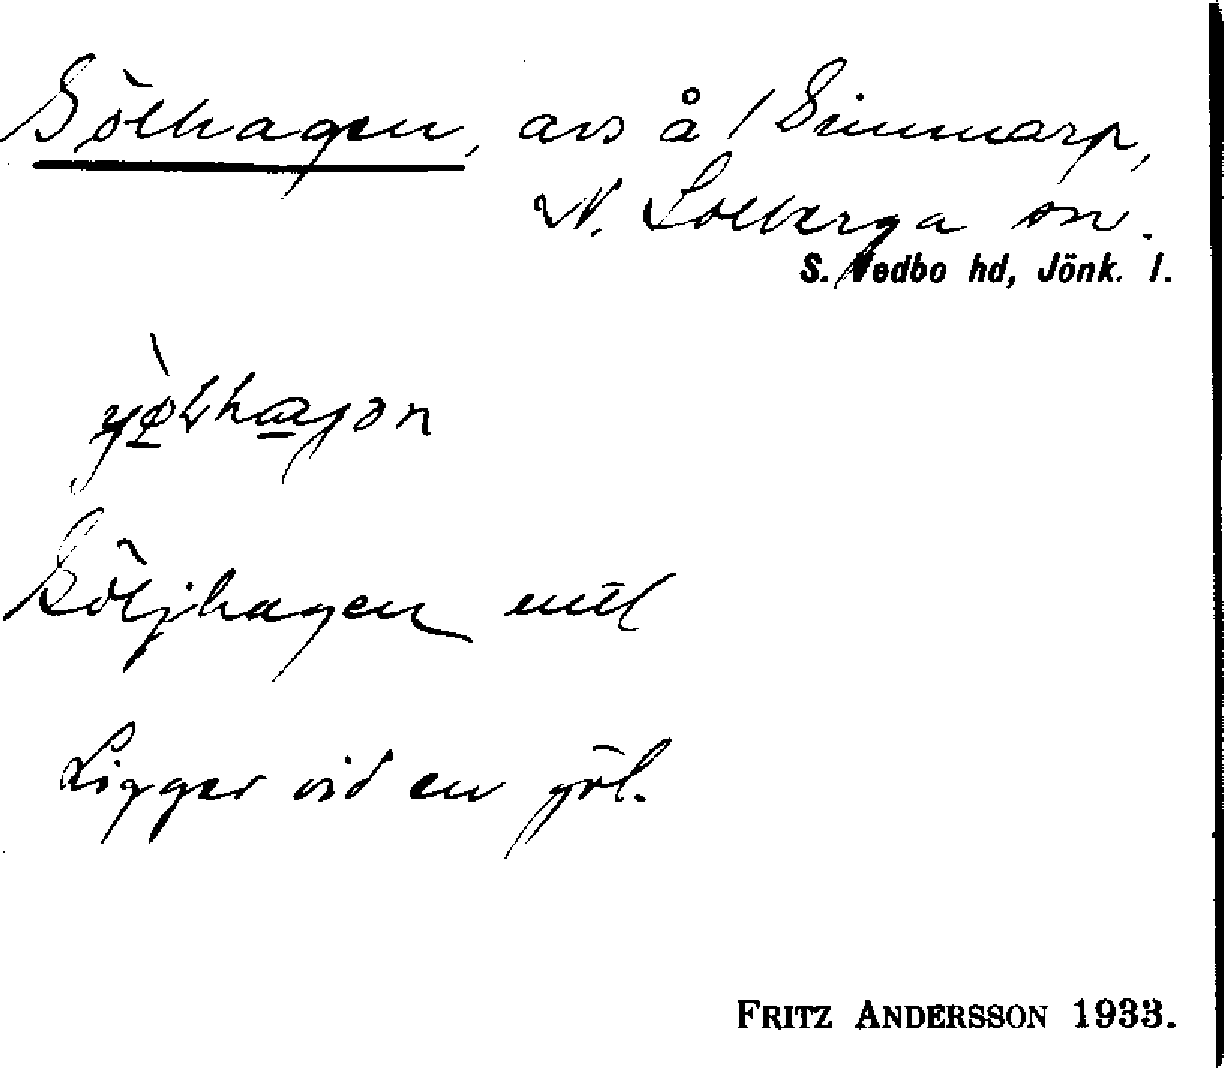 Gölhagen, avs å / Simmarp,
N. Solberga sn.
S. Vedbo hd, Jönk. l.
Göljhagen
Ligger vid en göl.
FRITZ ANDERSSON 1933.